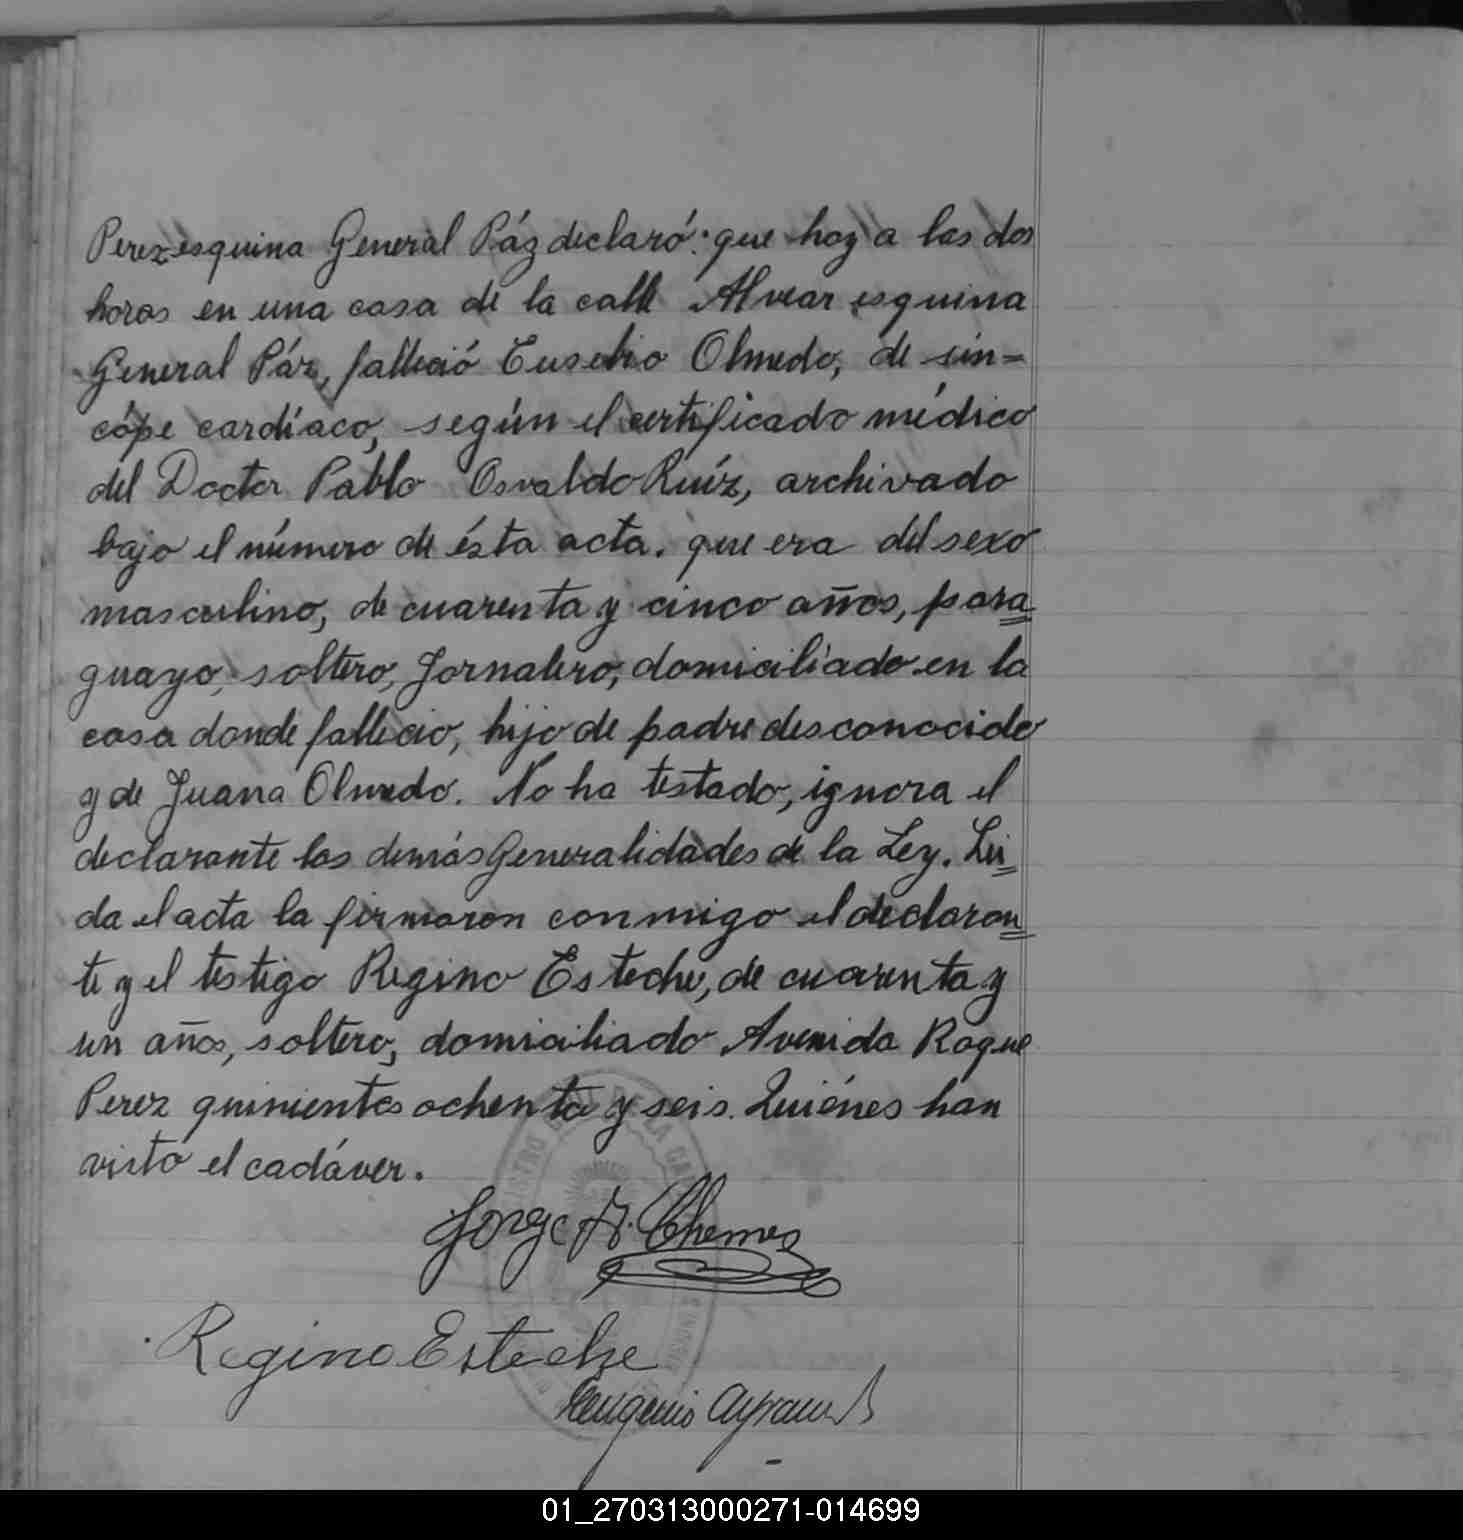 Perez esquina General Páz declaró: que hoy a las dos
horas en una casa de la calle Alvear esquina
General Páz, falleció Eusebio Olmedo, de sín-
cópe cardíaco, según el certificado médico
del Doctor Pablo Osvaldo Ruíz, archivado
bajo el número de ésta acta. que era del sexo
masculino, de cuarenta y cinco años, para=
guayo, soltero, Jornalero, domiciliado en la
casa donde fallecio, hijo de padre desconocido
y de Juana Olmedo. No ha testado, ignora el
declarante las demás Generalidades de la Ley. Leí=
da el acta la firmaron conmigo el declaran=
te y el testigo Regino Esteche, de cuarenta y
un años, soltero, domiciliado Avenida Roque
Perez quinientos ochenta y seis. Quiénes han
visto el cadáver.
Jorge A. Chemes
Regino Esteche
Eugenio
REGISTRO DE LA
01_270313000271-014699